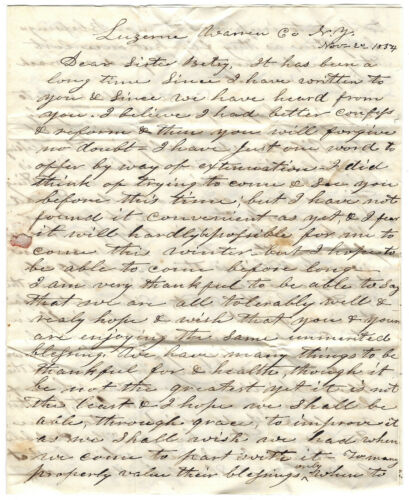 Luzerne Warren Co N.Y.
Nov 22 1854
Dear Sister Betsy. It has been a
long time since I have written to
you & since we have heard from
you. I believe I had better confess
& reform & then you will forgive
no doubt. I have just one word to
offer by way of extenuation I did
think of trying to come & see you
before this time; but I have not
found it convenient as yet & I fear
it will hardly possible for me to
come this winter but I hope to
be able to come before long.
I am very thankful to be able to say
that we are all tolerably well &
realy hope & wish that you & yours
are enjoying the same unmerited
blessing. We have many things to be
thankful for & health, though it
be not the greatest yet it is not
the least & I hope we shall be
able, through grace, to improve it
as we shall wish we had when
we come to part with it. To many
properly value their blessings only when to